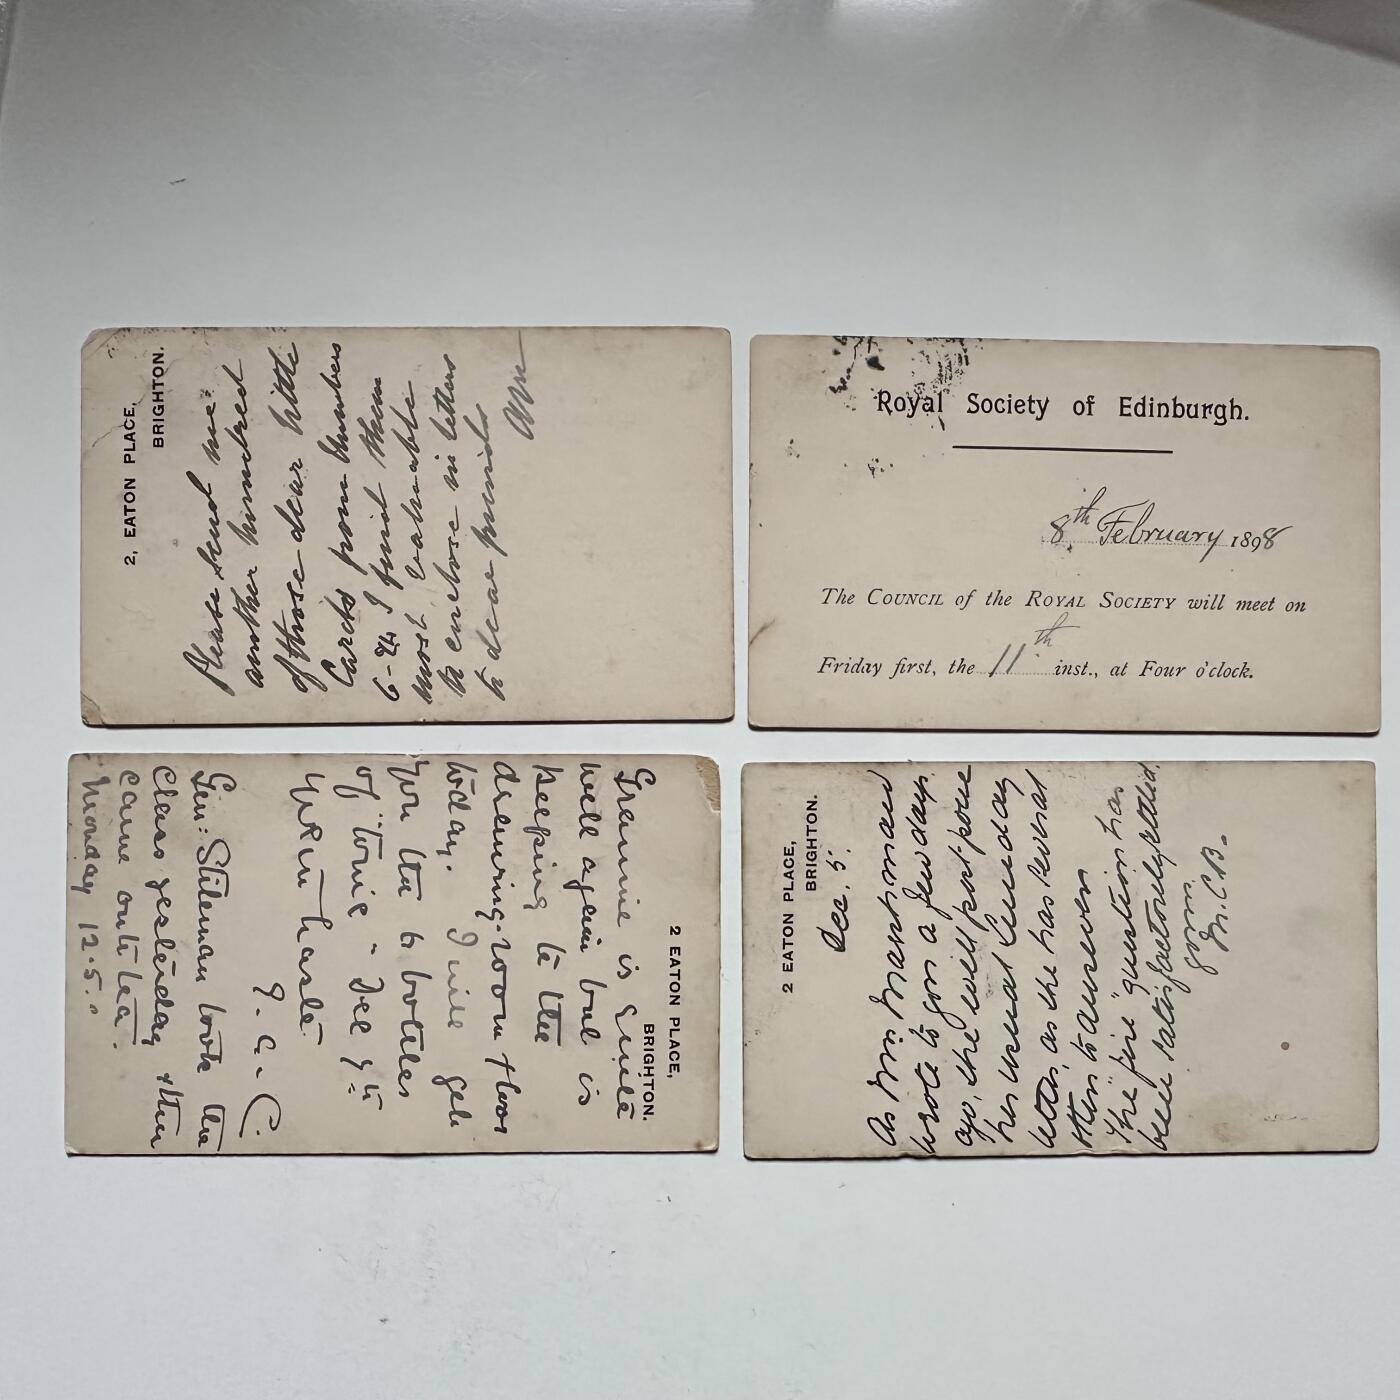 2, EATON PLACE,
BRIGHTON.
Please send me
another hundred
of those dear little
Cards from Numbers
6-24 I find them
most valuable
to enclose in letters
to dear friends
Royal Society of Edinburgh.
8th February 1898
The COUNCIL of the ROYAL SOCIETY will meet on
Friday first, the 11th inst., at Four o'clock.
2 EATON PLACE,
BRIGHTON.
Grannie is quite
well again but is
keeping to the
drawing-room floor
today. I will get
you the 6 bottles
of "tonic"
Yrs in haste
J. a. C.
Gen: Stileman took the
Class yesterday & then
came on to tea.
Monday 12.5.
2 EATON PLACE,
BRIGHTON.
Dec. 5.
As Mrs Marshman
wrote to you a few days
ago, she will postpone
her usual Sunday
letter, as she has several
others to answer
The "fire" question has
been satisfactorily settled.
M.C.B.